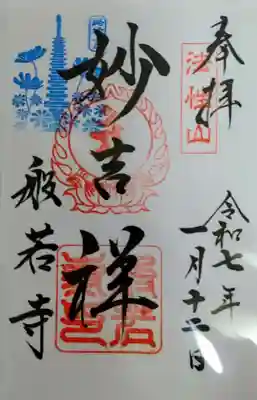 奉拝
法性山
令和七年
一月十二日
妙吉祥
般若寺